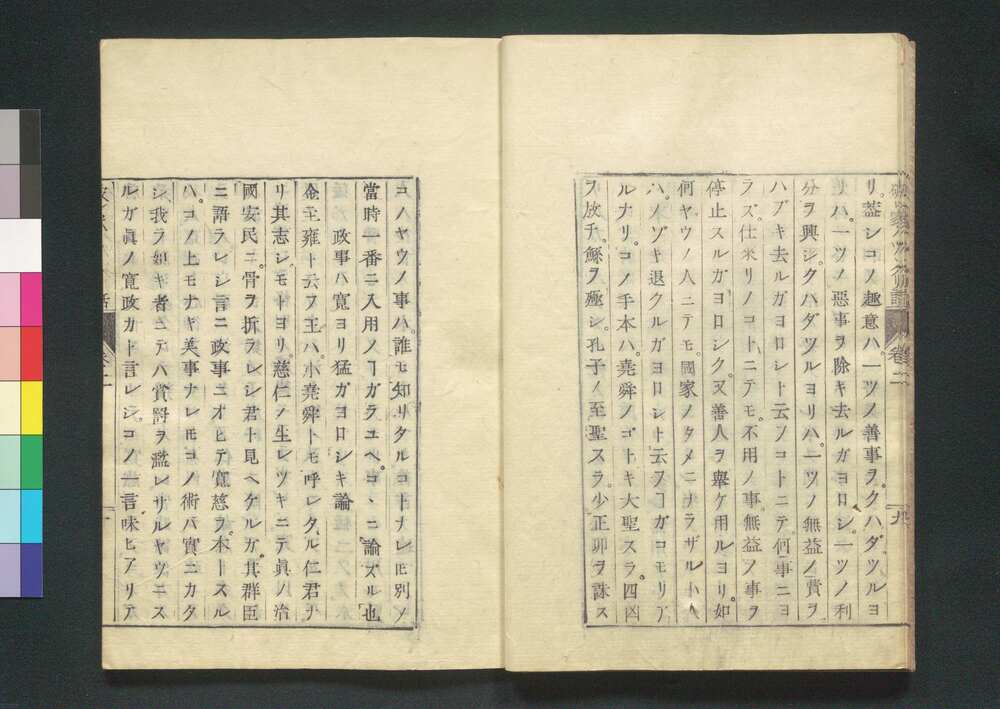 リ。蓋シコノ趣意ハ。一ツノ善事ヲ。クハダツルヨ
リハ。一ツノ惡事ヲ除キ去ルガヨロシ。一ツノ利
分ヲ興シ。クハダツルヨリハ。一ツノ無益ノ費ヲ
ハブキ去ルガヨロシト云フコトニテ。何事ニヨ
ラズ。仕來リノコトニテモ。不用ノ事無益ノ事ヲ
停止スルガヨロシク。又善人ヲ擧ケ用ルヨリ。如
何ヤウノ人ニテモ。國家ノタメニナラザル小人
ハ。ノゾキ退クルガヨロシト云フヿガコモリア
ルナリ。コノ手本ハ。堯舜ノゴトキ大聖スラ。四凶
ヲ放チ。鯀ヲ殛シ。孔子ノ至聖スラ。少正卯ヲ誅ス
コノヤウノ事ハ。誰モ知リタルコトナレ𪜈別ノ
當時一番ニ入用ノヿガラユヘ。コヽニ論ズル也
政事ハ寬ヨリ猛ガヨロシキ論
金主雍ト云フ王ハ。小堯舜トモ呼レタル仁君ナ
リ其志シモトヨリ。慈仁ノ生レツキニテ眞ノ治
國安民ニ。骨ヲ折ラレシ君ト見ヘケルガ。其群臣
ニ語ラレシ言ニ政事ニオヒテ寬慈ヲ。本トスル
ハ。コノ上モナキ美事ナレ𪜈コノ術バ實ニカタ
シ。我ヲ如キ者ニテハ賞罸ヲ濫レサルヤヅニス
ルガ眞ノ寬政カト言レシ。コノ一言味ヒアリア
卷二
九